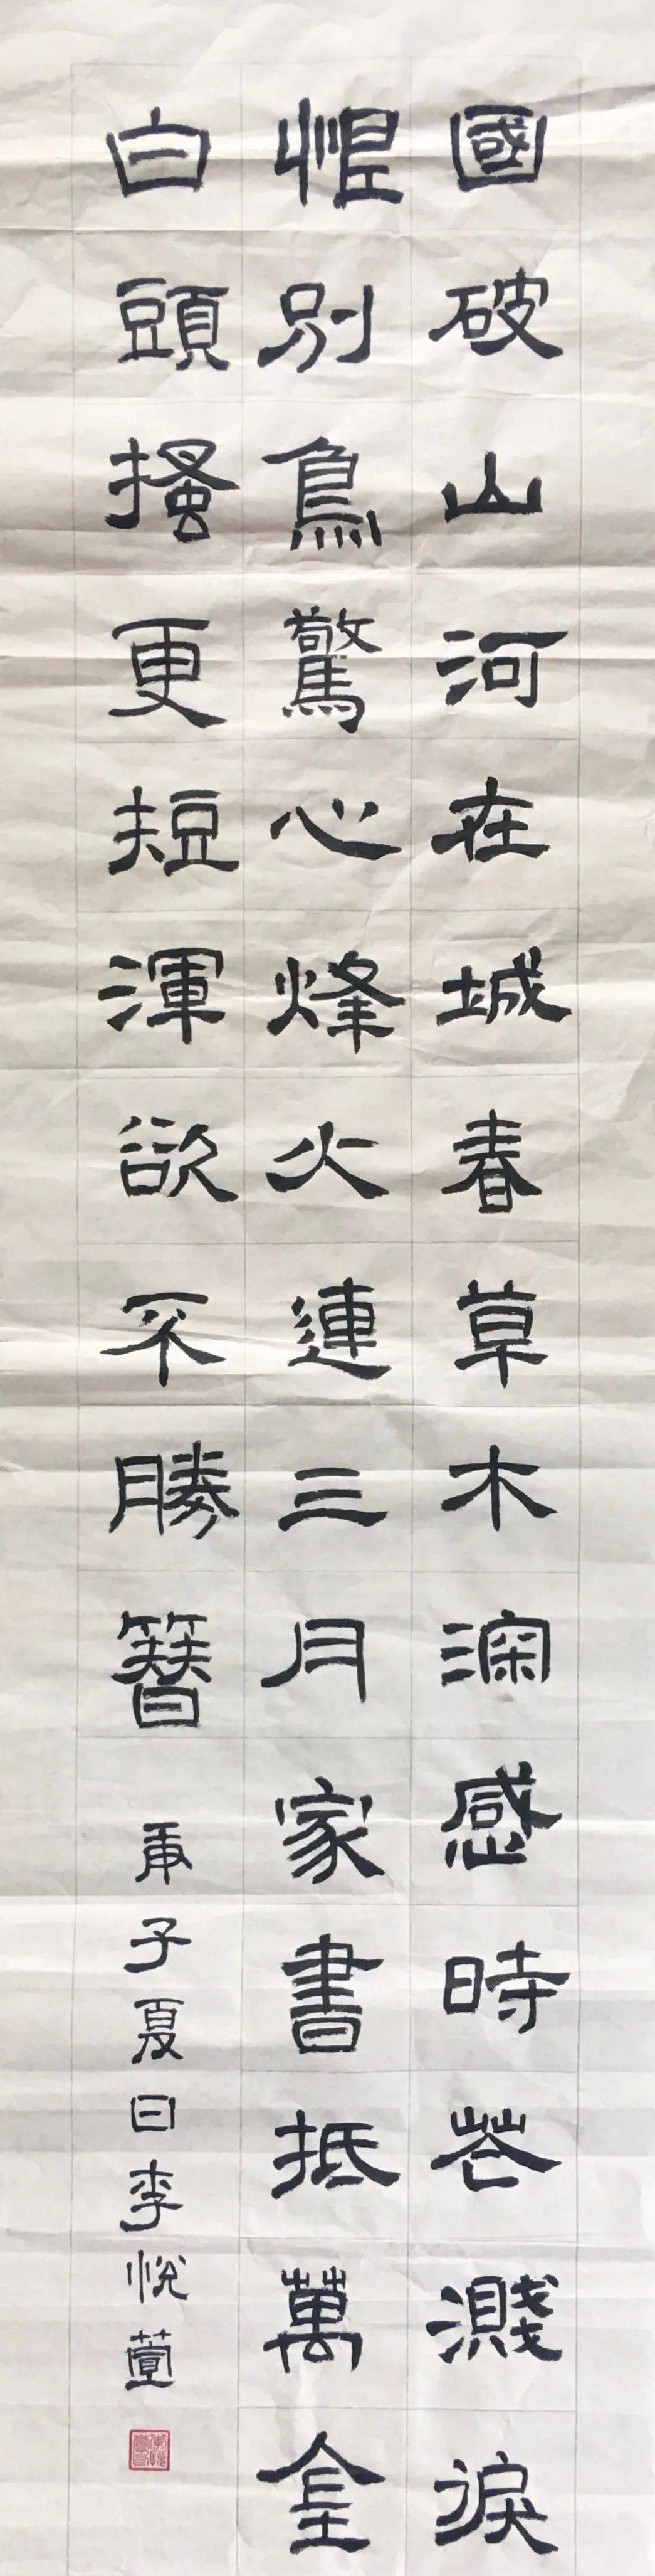 國破山河在城春草木深感時花濺淚
恨別鳥驚心烽火連三月家書抵萬金
白頭搔更短渾欲不勝簪
庚子夏日李悅萱